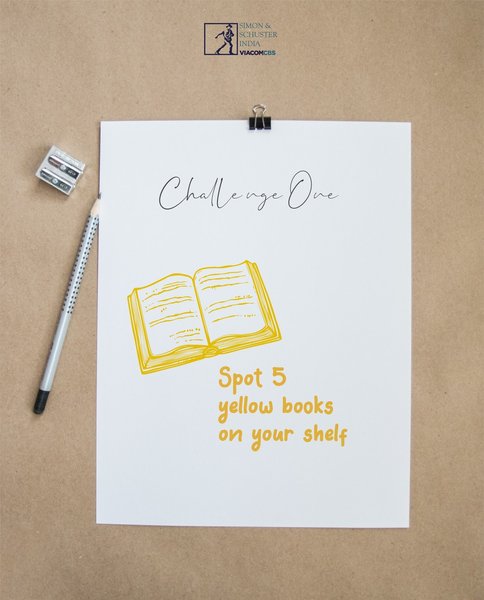 SIMON &
SCHUSTER
INDIA
VIACOMCBS
Challenge One
Spot 5
yellow books
on your shelf